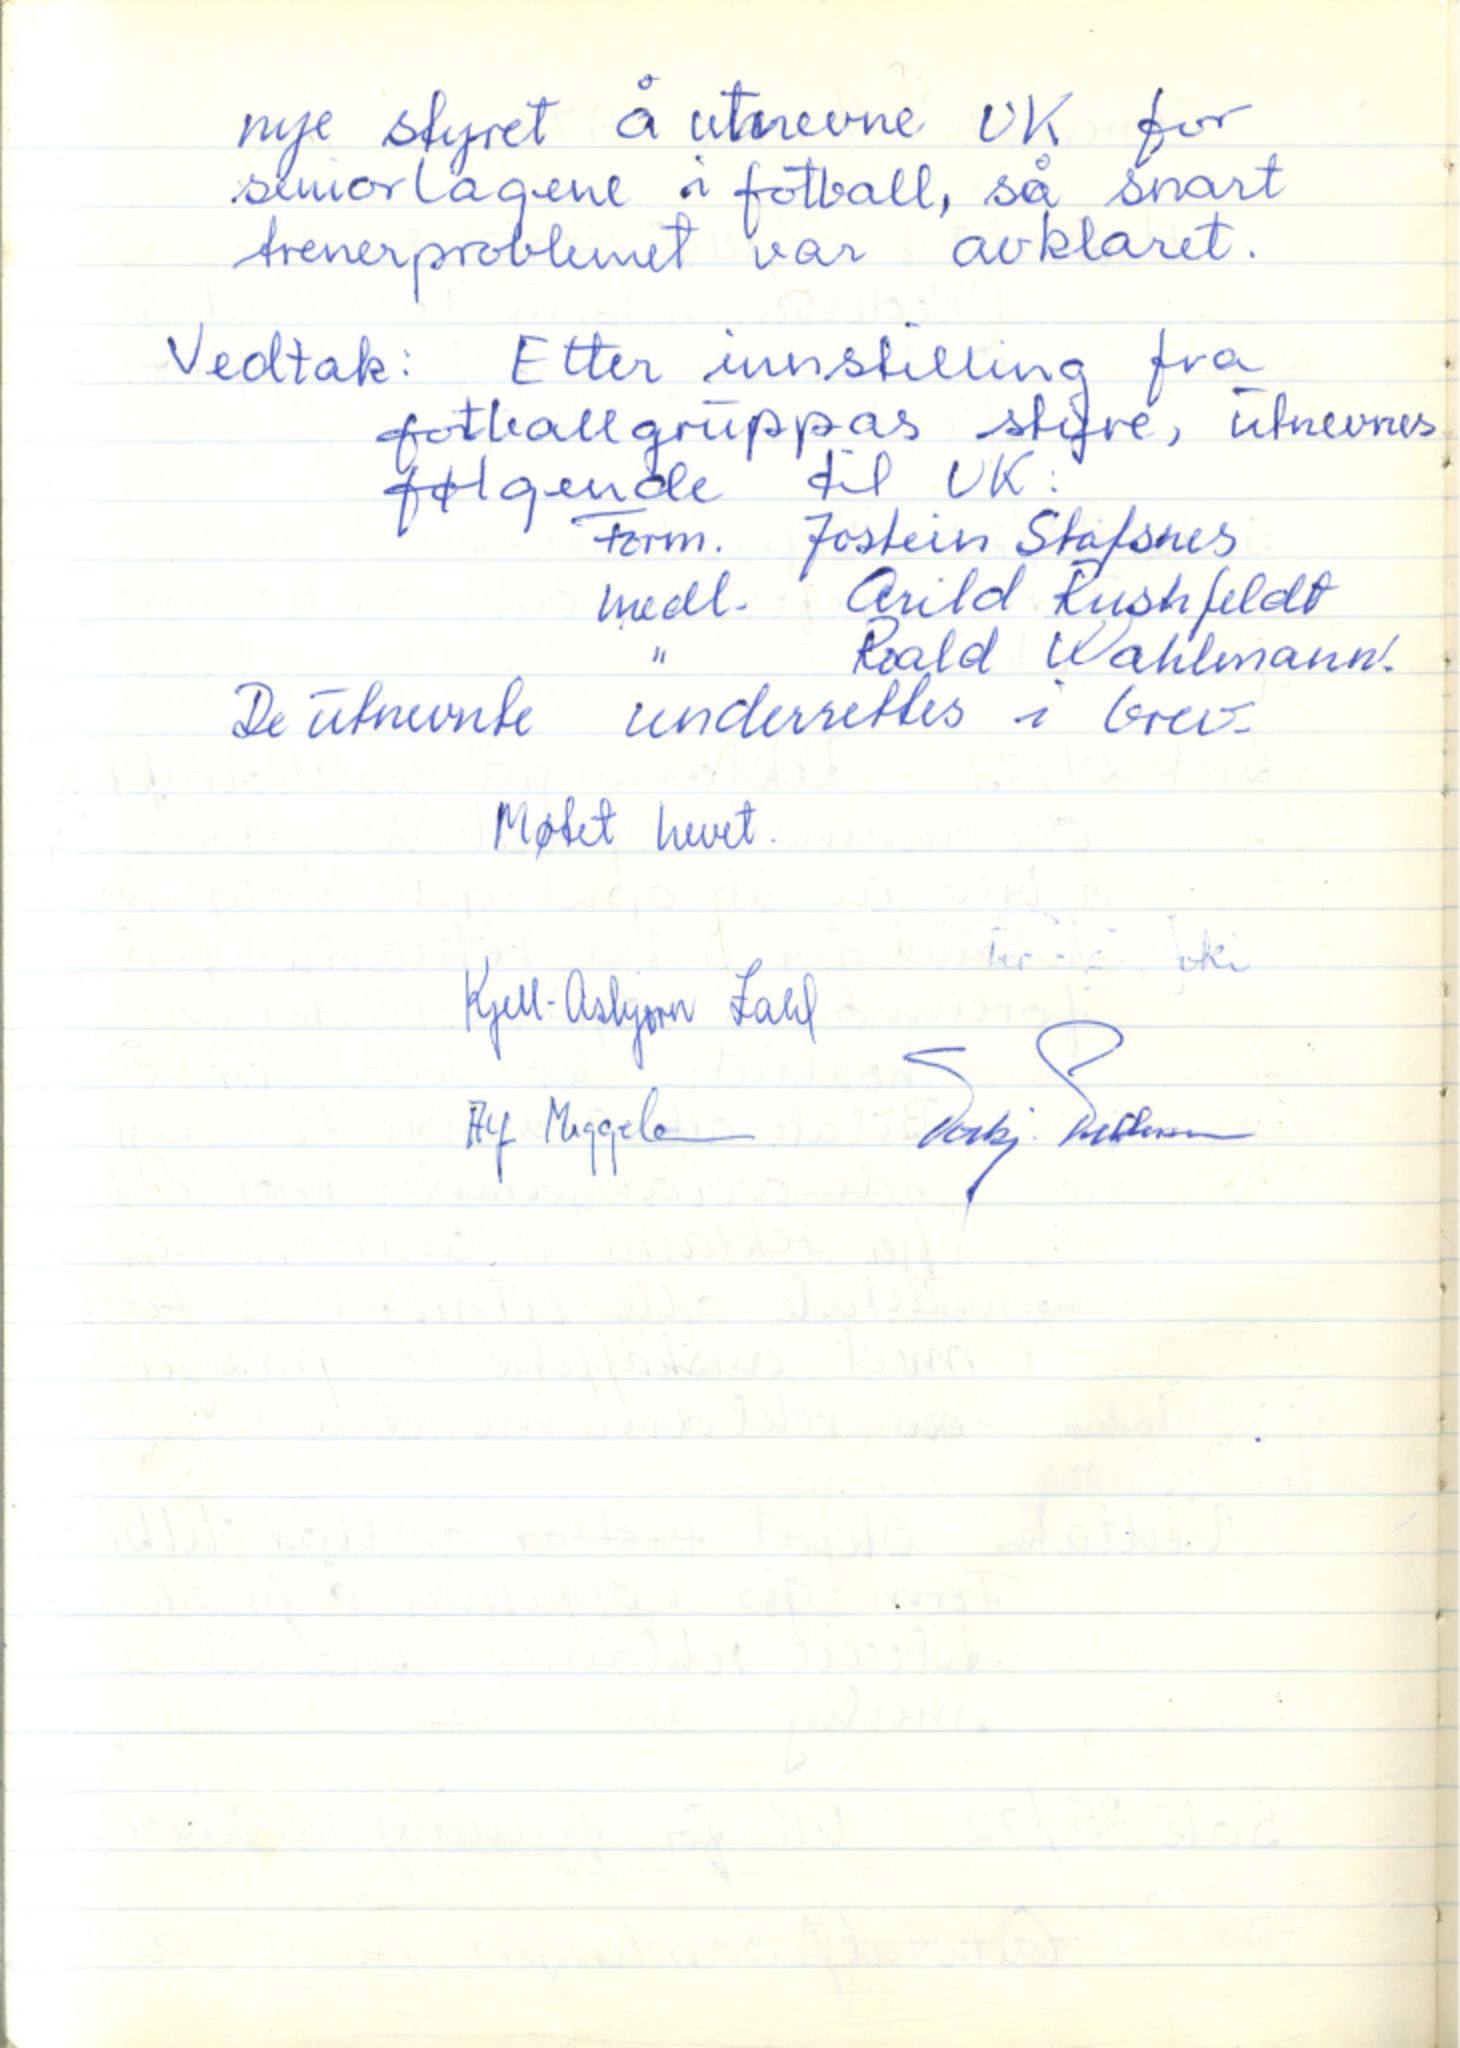 nye styret å utnevne UK for
seniorlagene i fotball, så snart
trenerproblemet var avklaret.
Vedtak: Etter innstilling fra
fotballgruppas styre, utnevnes
følgende til UK:
Form. Jostein Stafsnes
medl. Arild Rushfeldt
" Roald Wahlmann.
De utnevnte underrettes i brev.
Møtet hevet.
Kjell-Asbjørn Zahl